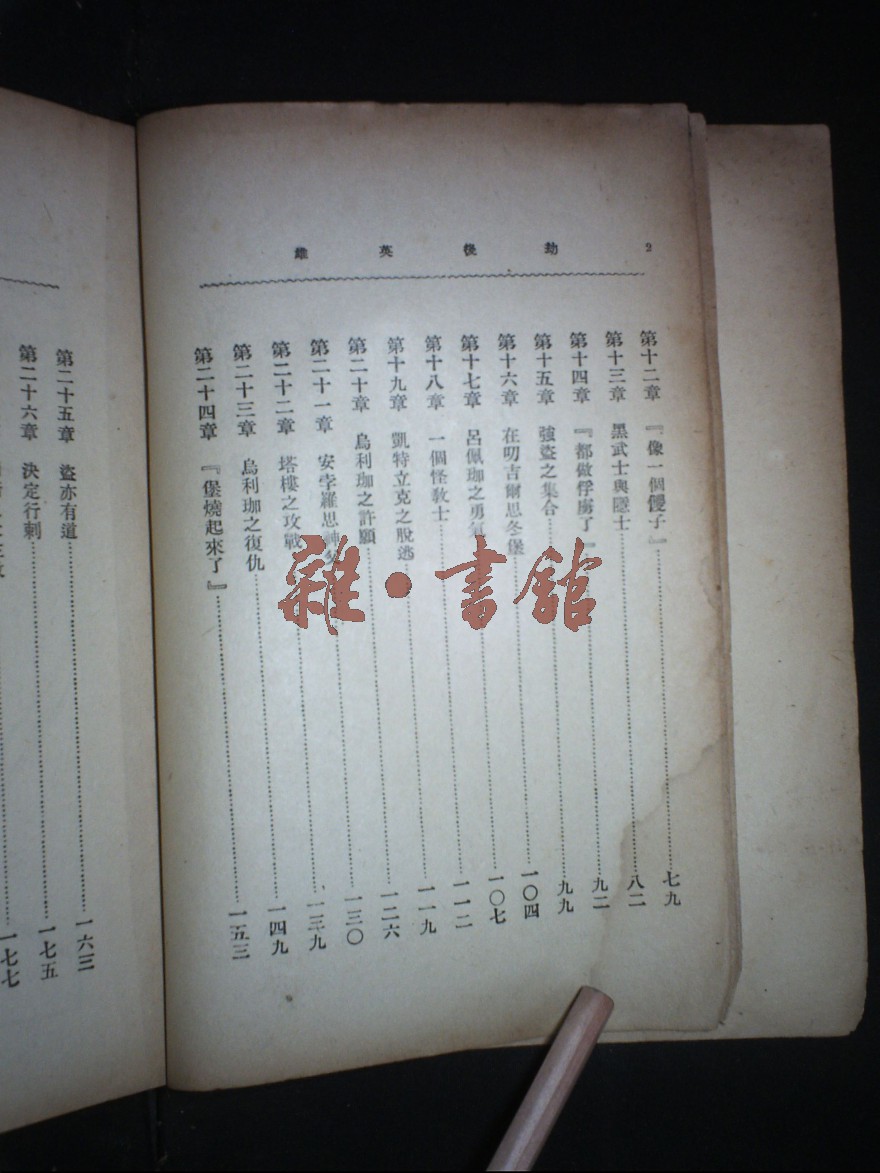 2 劫後英雄
第十二章 『像一個儍子』 七九
第十三章 黑武士與隱士 八二
第十四章 『都做俘虜了』 九二
第十五章 強盜之集合 九九
第十六章 在叨吉爾思冬堡 一〇四
第十七章 呂佩珈之勇氣 一〇七
第十八章 一個怪教士 一一二
第十九章 凱特立克之脫逃 一一九
第二十章 烏利珈之許願 一二六
第二十一章 安孛羅思神父 一三〇
第二十二章 塔樓之攻戰 一三九
第二十三章 烏利珈之復仇 一四九
第二十四章 『堡燒起來了』 一五三
第二十五章 盜亦有道 一六三
第二十六章 決定行刺 一七五
一七七
雜·書館